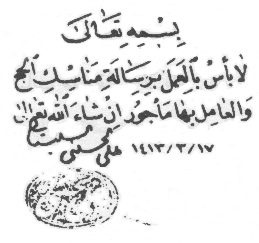 بِسْمِهِ تَعَالَىٰ
لَا بَأْسَ بِالْعَمَلِ بِرِسَالَةِ مَنَاسِكِ الْحَجِّ
وَالْعَامِلُ بِهَا مَأْجُورٌ اِنْ شَاءَ اللهُ تَعَالَىٰ
١٤١٣/٣/١٧ علي